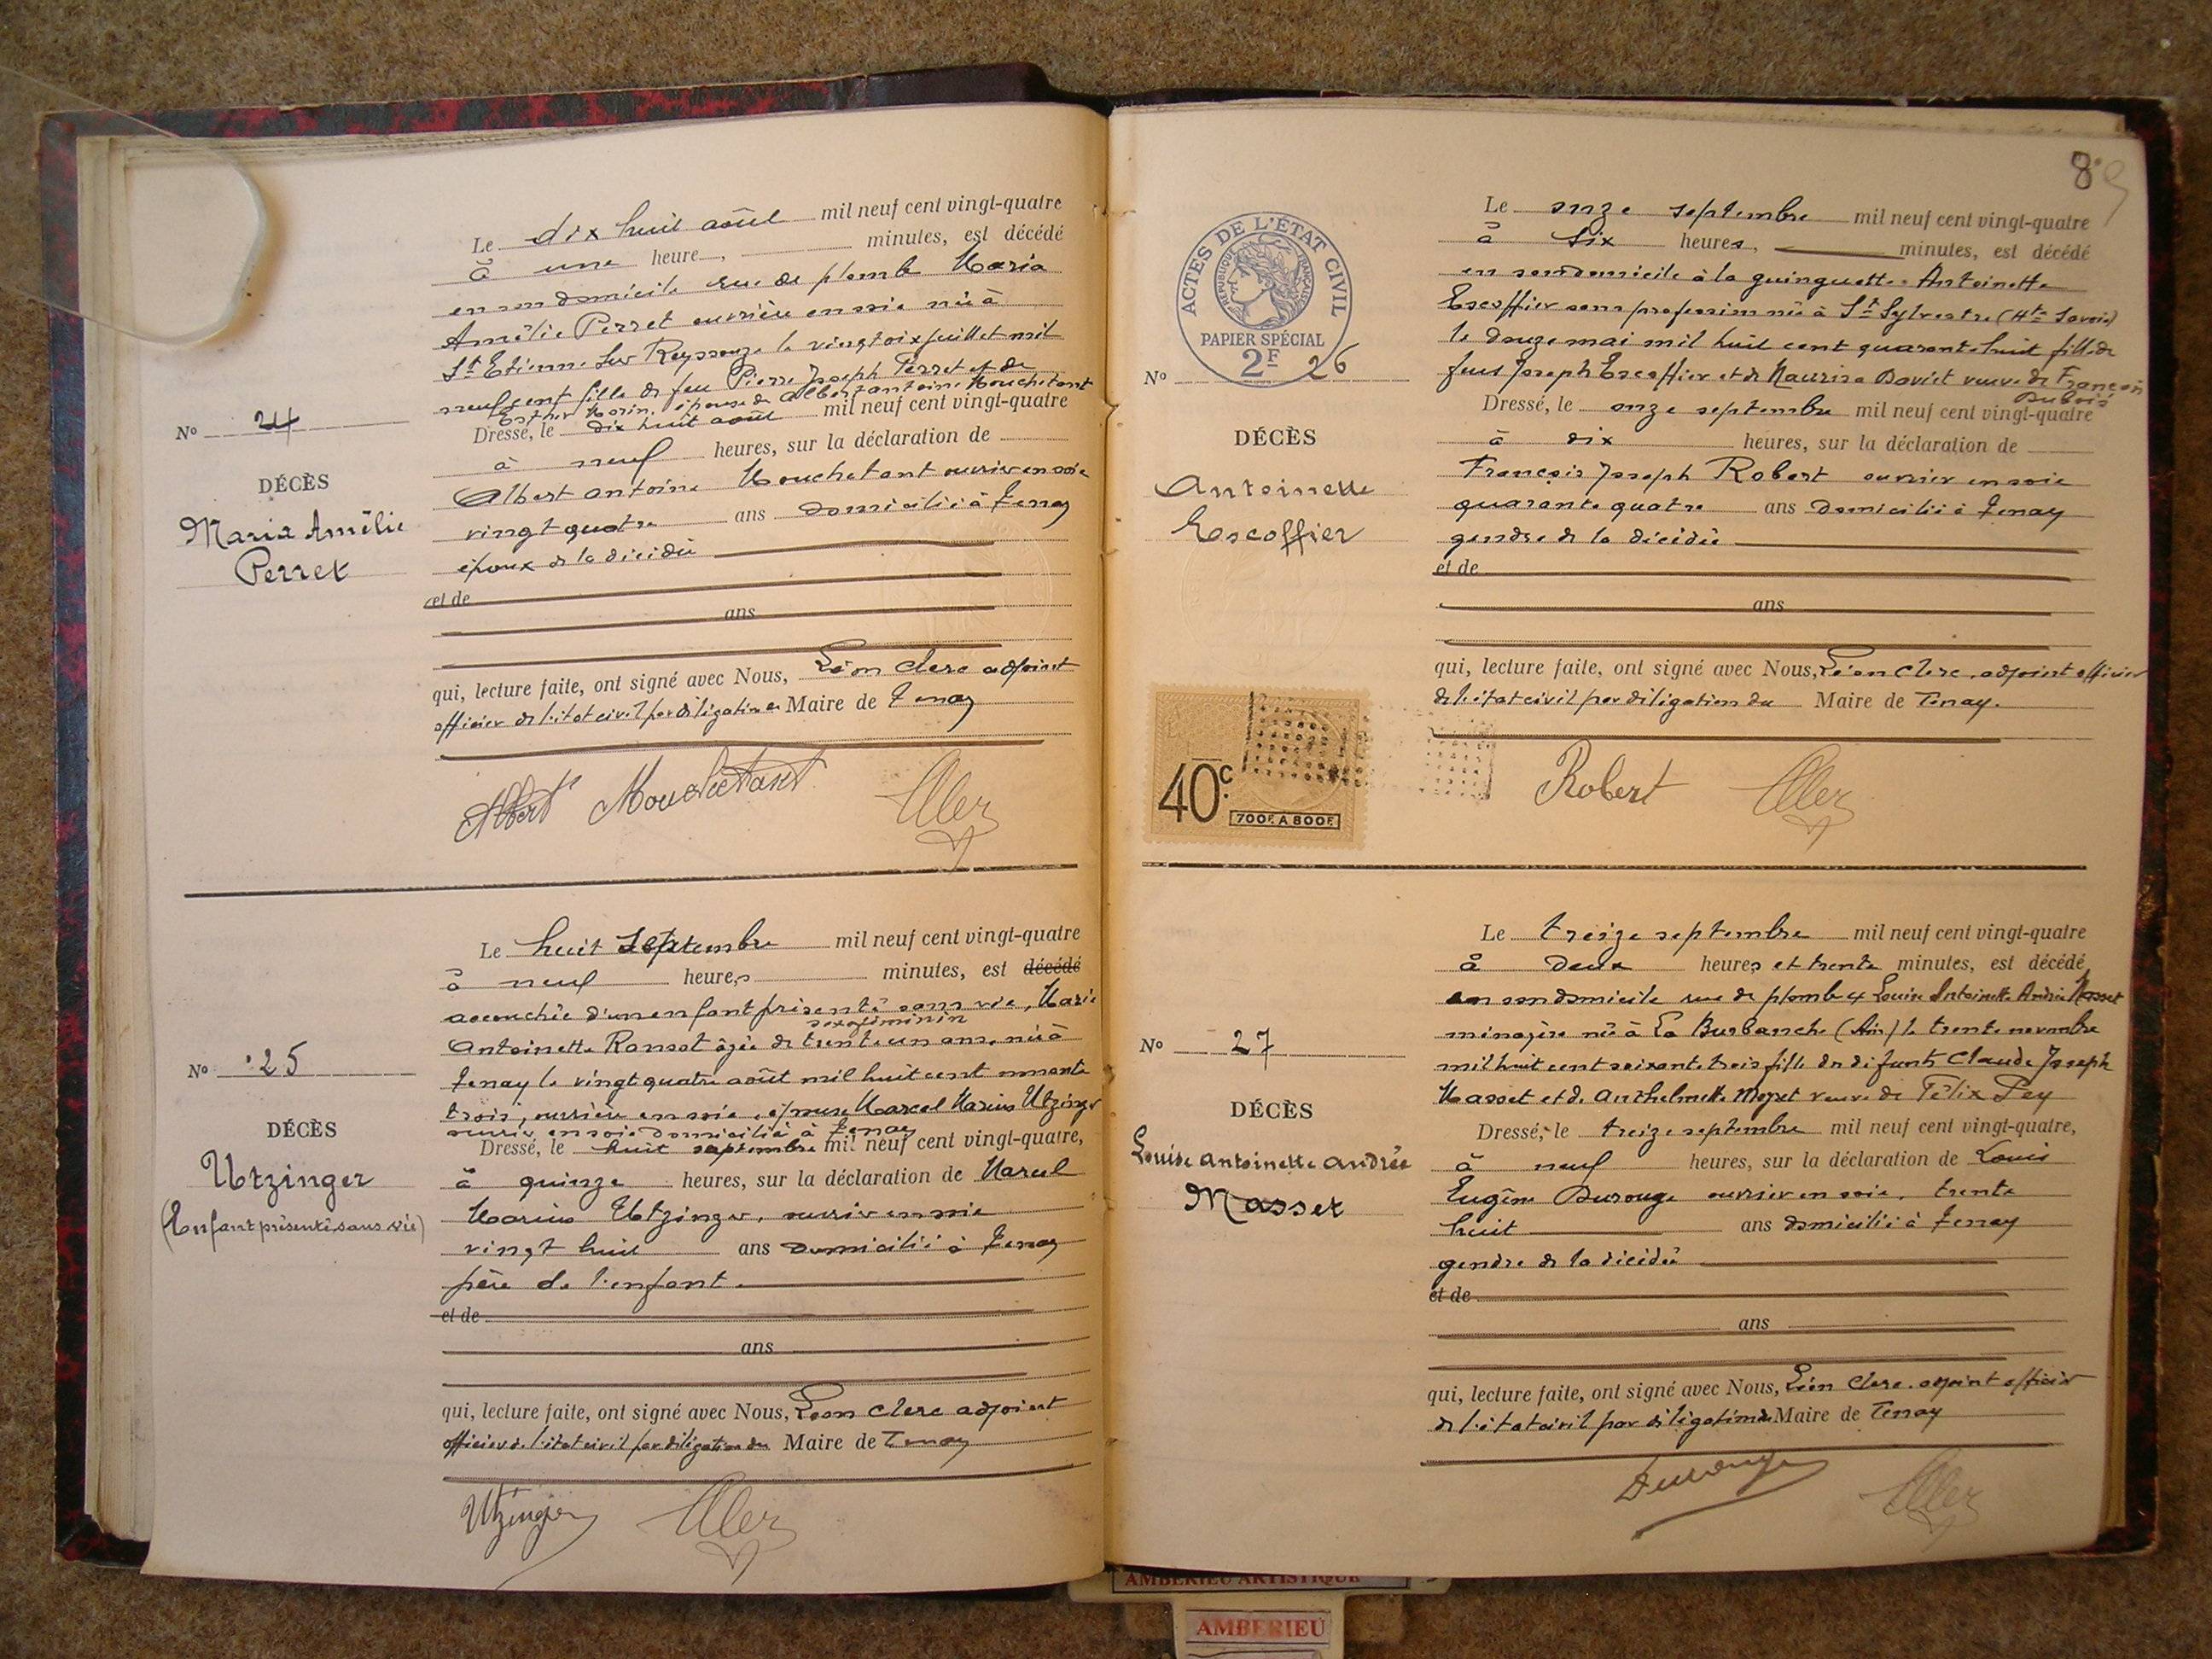 Le dix huit août mil neuf cent vingt-quatre
à une heure, minutes, est décédé
en son domicile rue de plomb Maria
Amélie Perret ouvrière en soie née à
St Etienne sur Reyssouze le vingt six juillet mil
neuf cent fille de feu Pierre Joseph Perret et de
Esther Morin, épouse de Albert antoine Mouchetant
No 24
Dressé, le dix huit août mil neuf cent vingt-quatre
à neuf heures, sur la déclaration de
DÉCÈS
Albert antoine Mouchetant ouvrier en soie
Maria Amélie
vingt quatre ans domicilié à Tenay
Perret
époux de la décédée
et de
ans
qui, lecture faite, ont signé avec Nous, Léon Clerc adjoint
officier de l'état civil par délégation du Maire de Tenay
Albert Mouchetant Clerc
Le huit Septembre mil neuf cent vingt-quatre
à neuf heures minutes, est décédé
accouchée d'un enfant présenté sans vie, Marie
sexe féminin
Antoinette Ransot âgée de trente un ans, née à
No 25
Tenay le vingt quatre août mil huit cent nonante
trois, ouvrière en soie, épouse Marcel Marius Utzinger
ouvrier en soie domicilié à Tenay
DÉCÈS
Dressé, le huit septembre mil neuf cent vingt-quatre,
Utzinger
à quinze heures, sur la déclaration de Marcel
(Enfant présenté sans vie)
Marius Utzinger, ouvrier en soie
vingt huit ans domicilié à Tenay
père de l'enfant.
et de
ans
qui, lecture faite, ont signé avec Nous, Léon Clerc adjoint
officier de l'état civil par délégation du Maire de Tenay
Utzinger Clerc
8
ACTES DE L'ÉTAT CIVIL
RÉPUBLIQUE FRANÇAISE
PAPIER SPÉCIAL
2F
No 26
Le onze septembre mil neuf cent vingt-quatre
à six heures, minutes, est décédé
en son domicile à la guinguette Antoinette
Escoffier sans profession née à St Sylvestre (Hte Savoie)
le douze mai mil huit cent quarante huit fille de
feus Joseph Escoffier et de Maurisa Daviet veuve de François
Dubois
Dressé, le onze septembre mil neuf cent vingt-quatre
DÉCÈS
à dix heures, sur la déclaration de
Antoinette
François Joseph Robert ouvrier en soie
Escoffier
quarante quatre ans domicilié à Tenay
gendre de la décédée
et de
ans
qui, lecture faite, ont signé avec Nous, Léon Clerc, adjoint officier
de l'état civil par délégation du Maire de Tenay.
40c.
700F. A 800F.
Robert Clerc
Le treize septembre mil neuf cent vingt-quatre
à deux heures et trente minutes, est décédé
en son domicile rue de plomb Louise Antoinette Andrée Masset
ménagère née à La Burbanche (Ain) le trente novembre
No 27
mil huit cent soixante trois fille de défunts Claude Joseph
Masset et de Anthelmette veuve de Félix Pey
DÉCÈS
Dressé, le treize septembre mil neuf cent vingt-quatre,
Louise antoinette andrée
à neuf heures, sur la déclaration de Louis
Masset
Eugène Durouge ouvrier en soie, trente
huit ans domicilié à Tenay
gendre de la décédée
et de
ans
qui, lecture faite, ont signé avec Nous, Léon Clerc adjoint officier
de l'état civil par délégation du Maire de Tenay
Durouge Clerc
AMBERIEU ARTISTIQUE
AMBERIEU